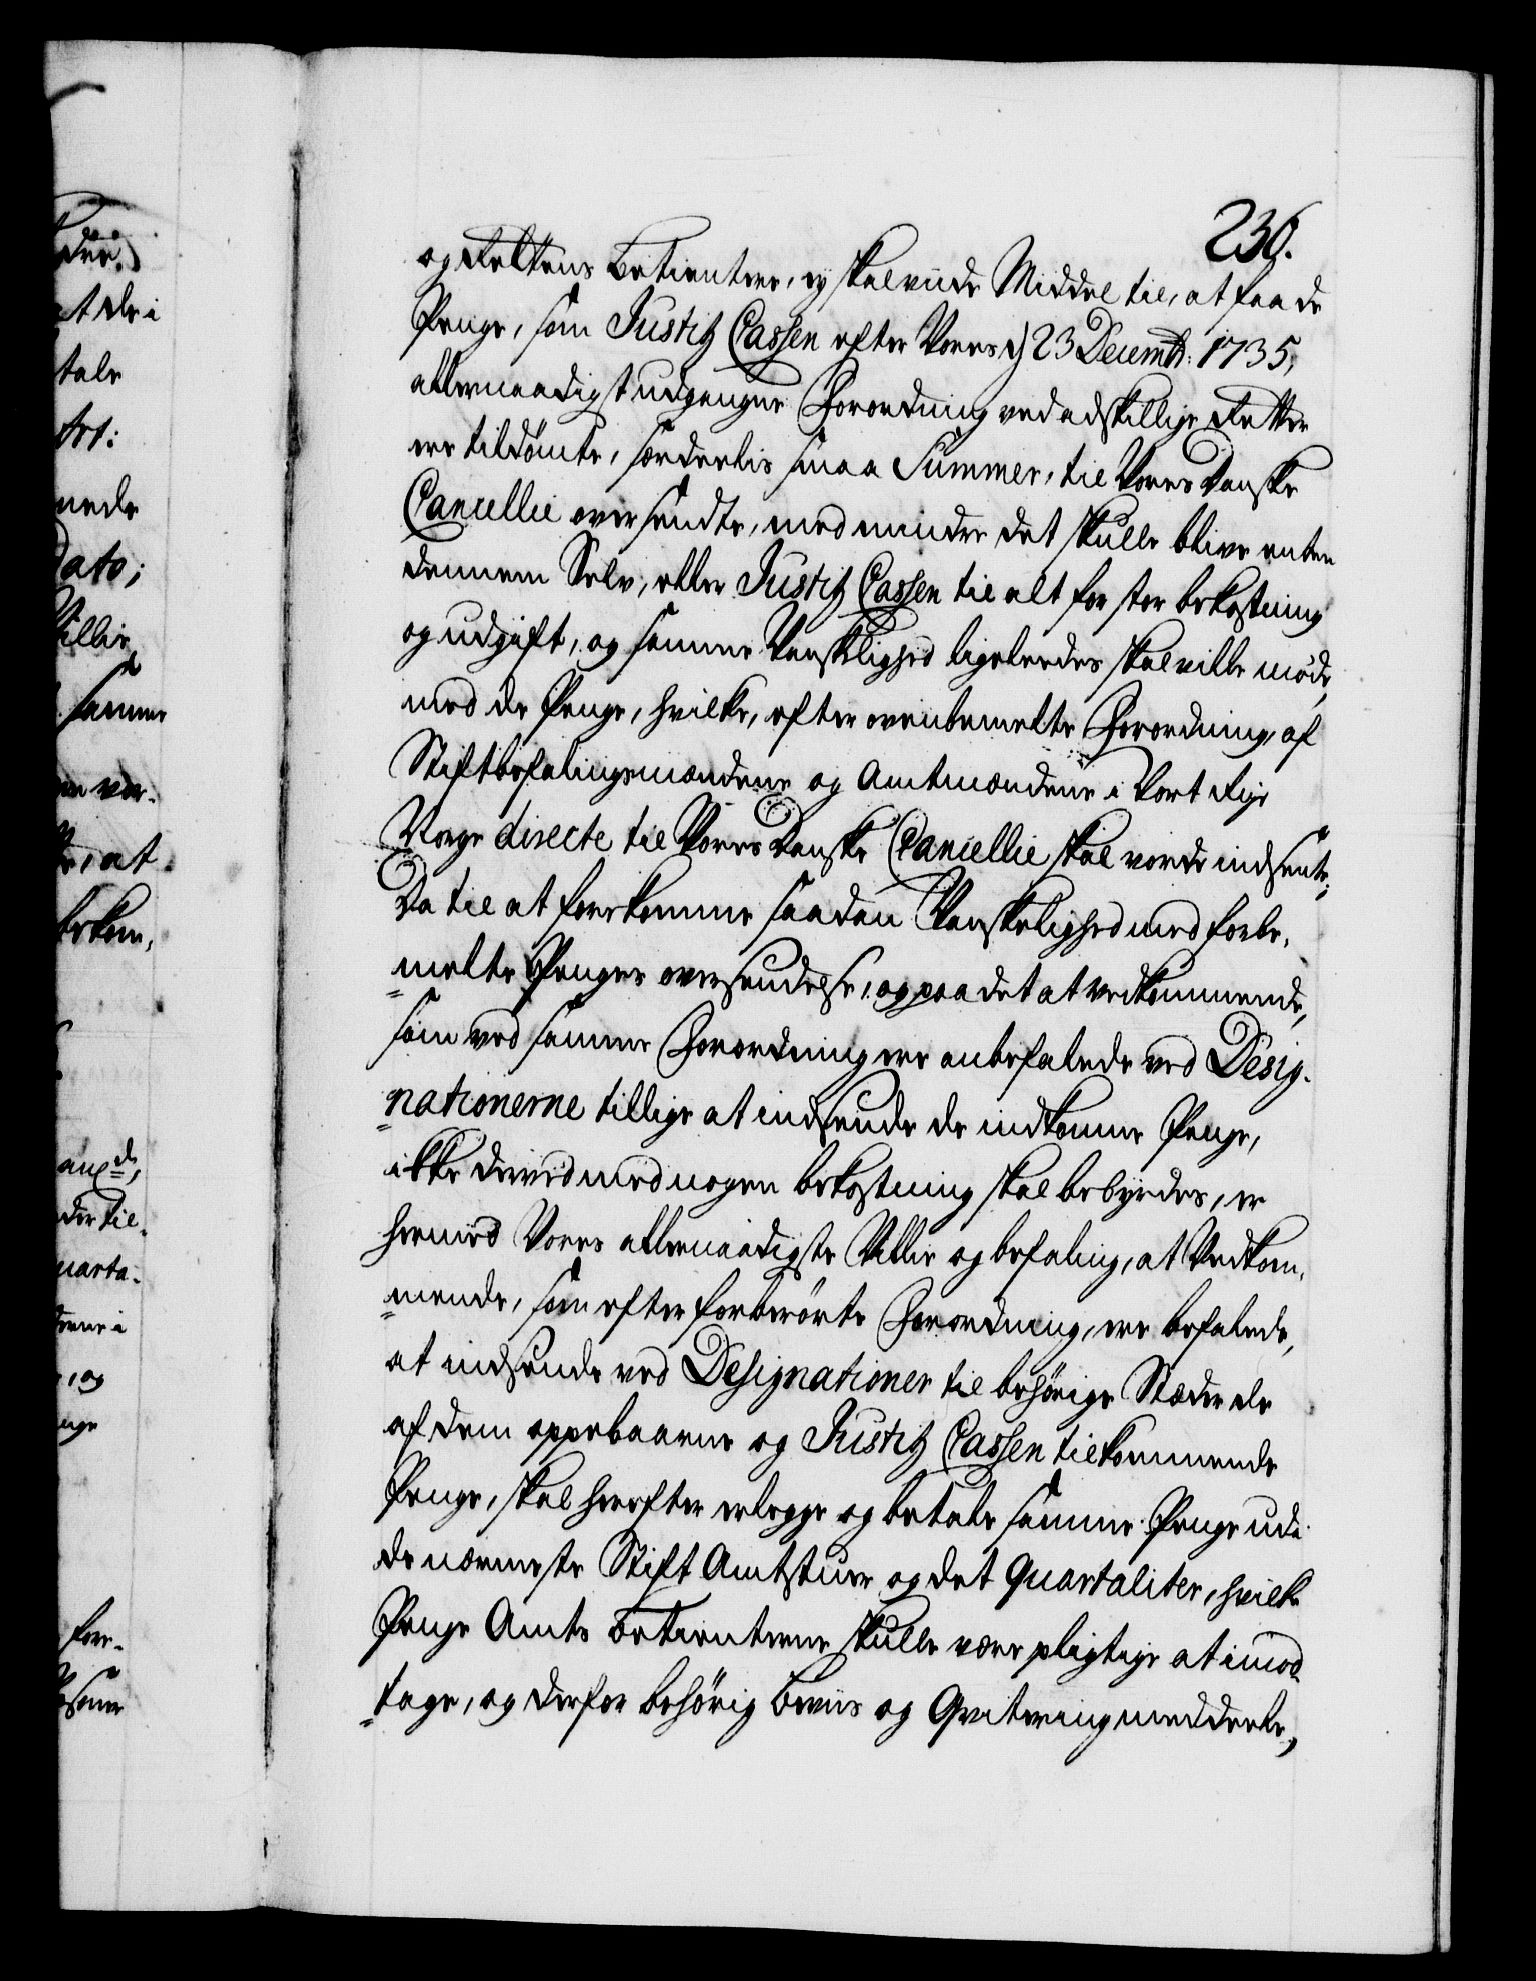 236.
og Rettens Betientere, ej skal viide Middel til, at faa de
Penge, som Justitz Cassen efter Vores d 23 Decembr: 1735,
allernaadigst udgangne Forordning ved adskillige Retter
ere tildömte, særdeelis smaa Summer, til Vores Danske
Cancellie oversendte, med mindre det skulle blive enten
dennem Selv, eller Justitz Cassen til alt for stor bekostning
og udgift, og samme Vanskelighed ligeleedes skal ville möde,
med de Penge, hvilke, efter ovenbemelte Forordning, af
Stiftbefalingsmændene og Amtmændene i Vort Rige
Norge directe til Vores Danske Cancellie skal vorde indsent;
Da til at forekomme saadan Vanskelighed med forbe-
melte Penges oversendelse, og paa det at vedkommende,
som ved samme Forordning ere anbefalede ved Desig-
nationerne tillige at indsende de indkomne Penge,
ikke derved med nogen bekostning skal bebyrdes, er
hermed Vores allernaadigste Villie og befaling, at Vedkom-
mende, som efter forberörte Forordning, ere befalede,
at indsende ved Designationer til behörige Stæder de
af dem oppebaarne og Justitz Cassen tilkommende
Penge, skal herefter erlegge og betale samme Penge udi
de nærmeste Stift Amtstuer og det quartaliter, hvilke
Penge Amts Betienterne skulle være pligtige at imod-
tage, og derfor behörig beviis og Qvitering meddeele,